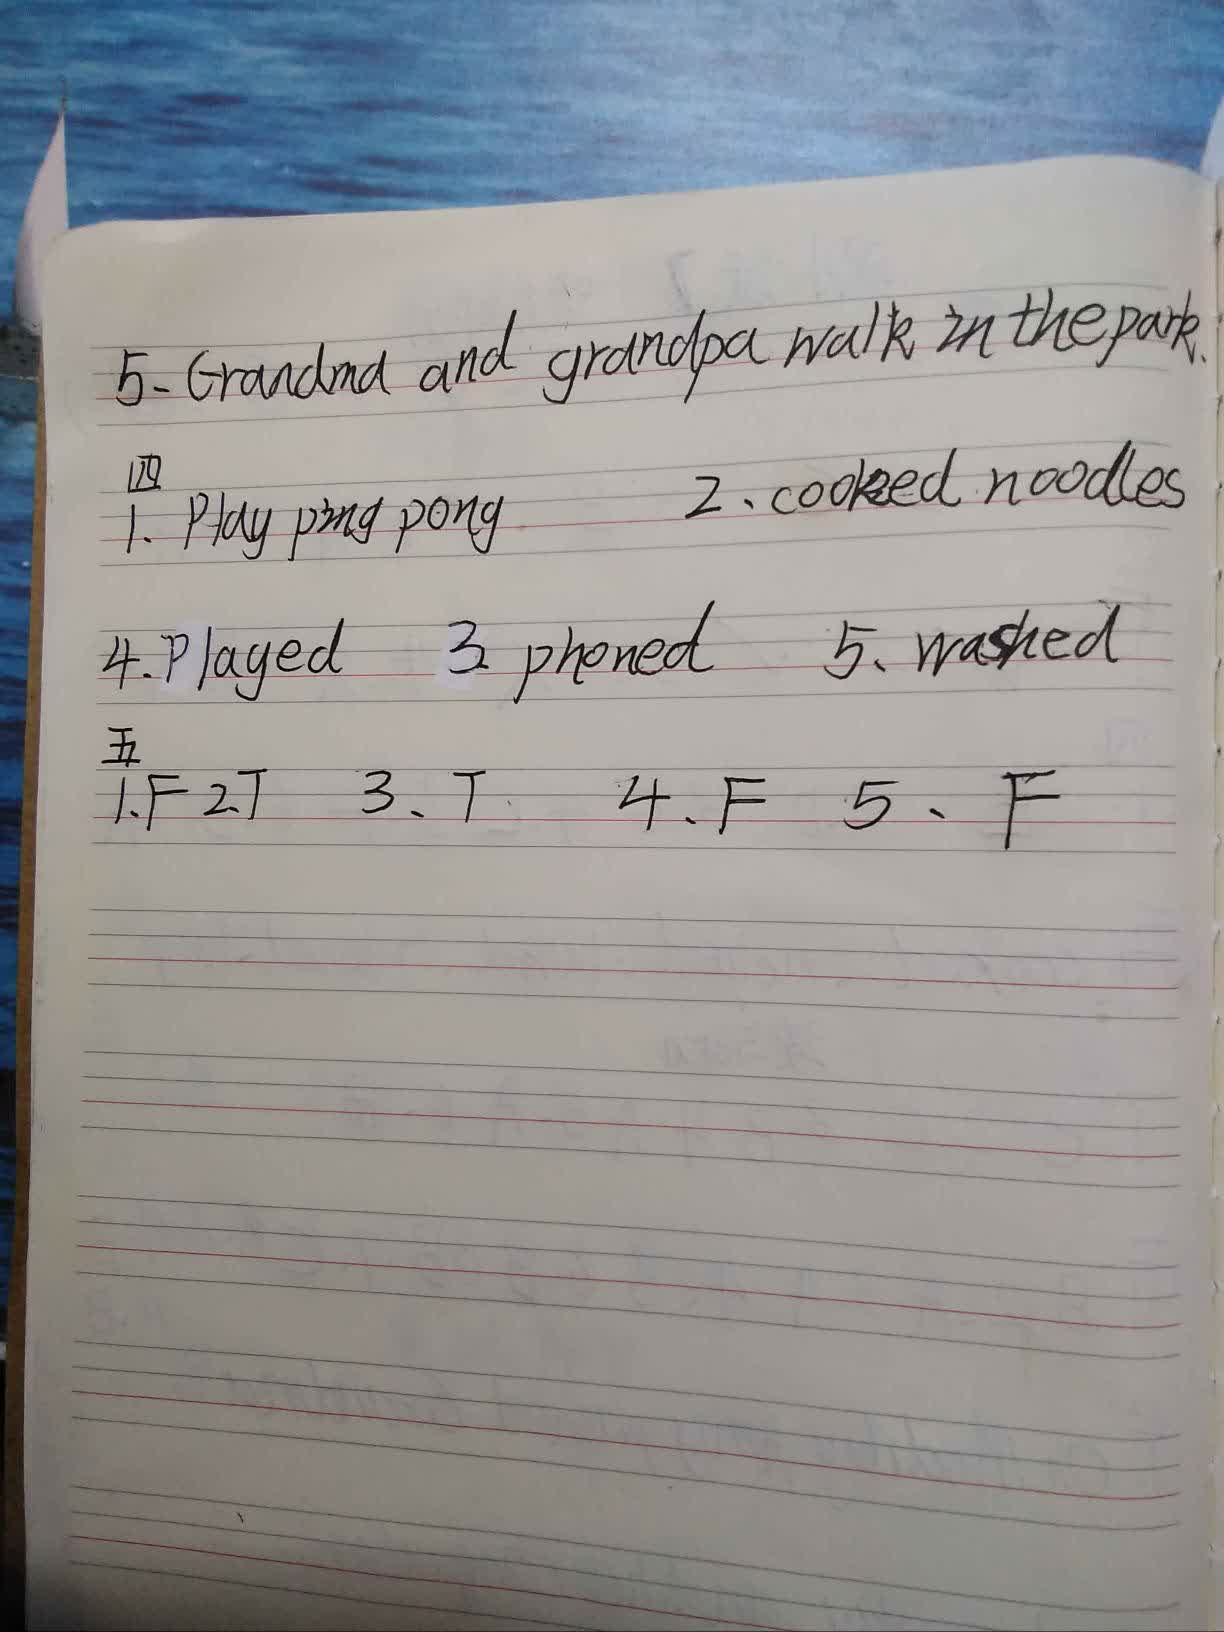 5- Grandma and grandpa walk in the park.
四
1. Play ping pong 2、cooked noodles
4. Played 3 phoned 5、washed
五
1. F 2.T 3、T 4、F 5、F